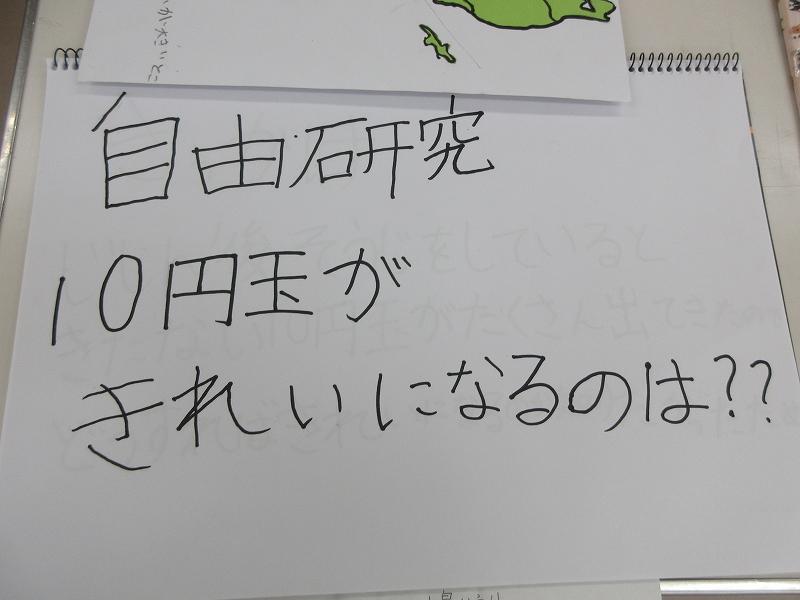 自由研究
10円玉が
きれいになるのは??